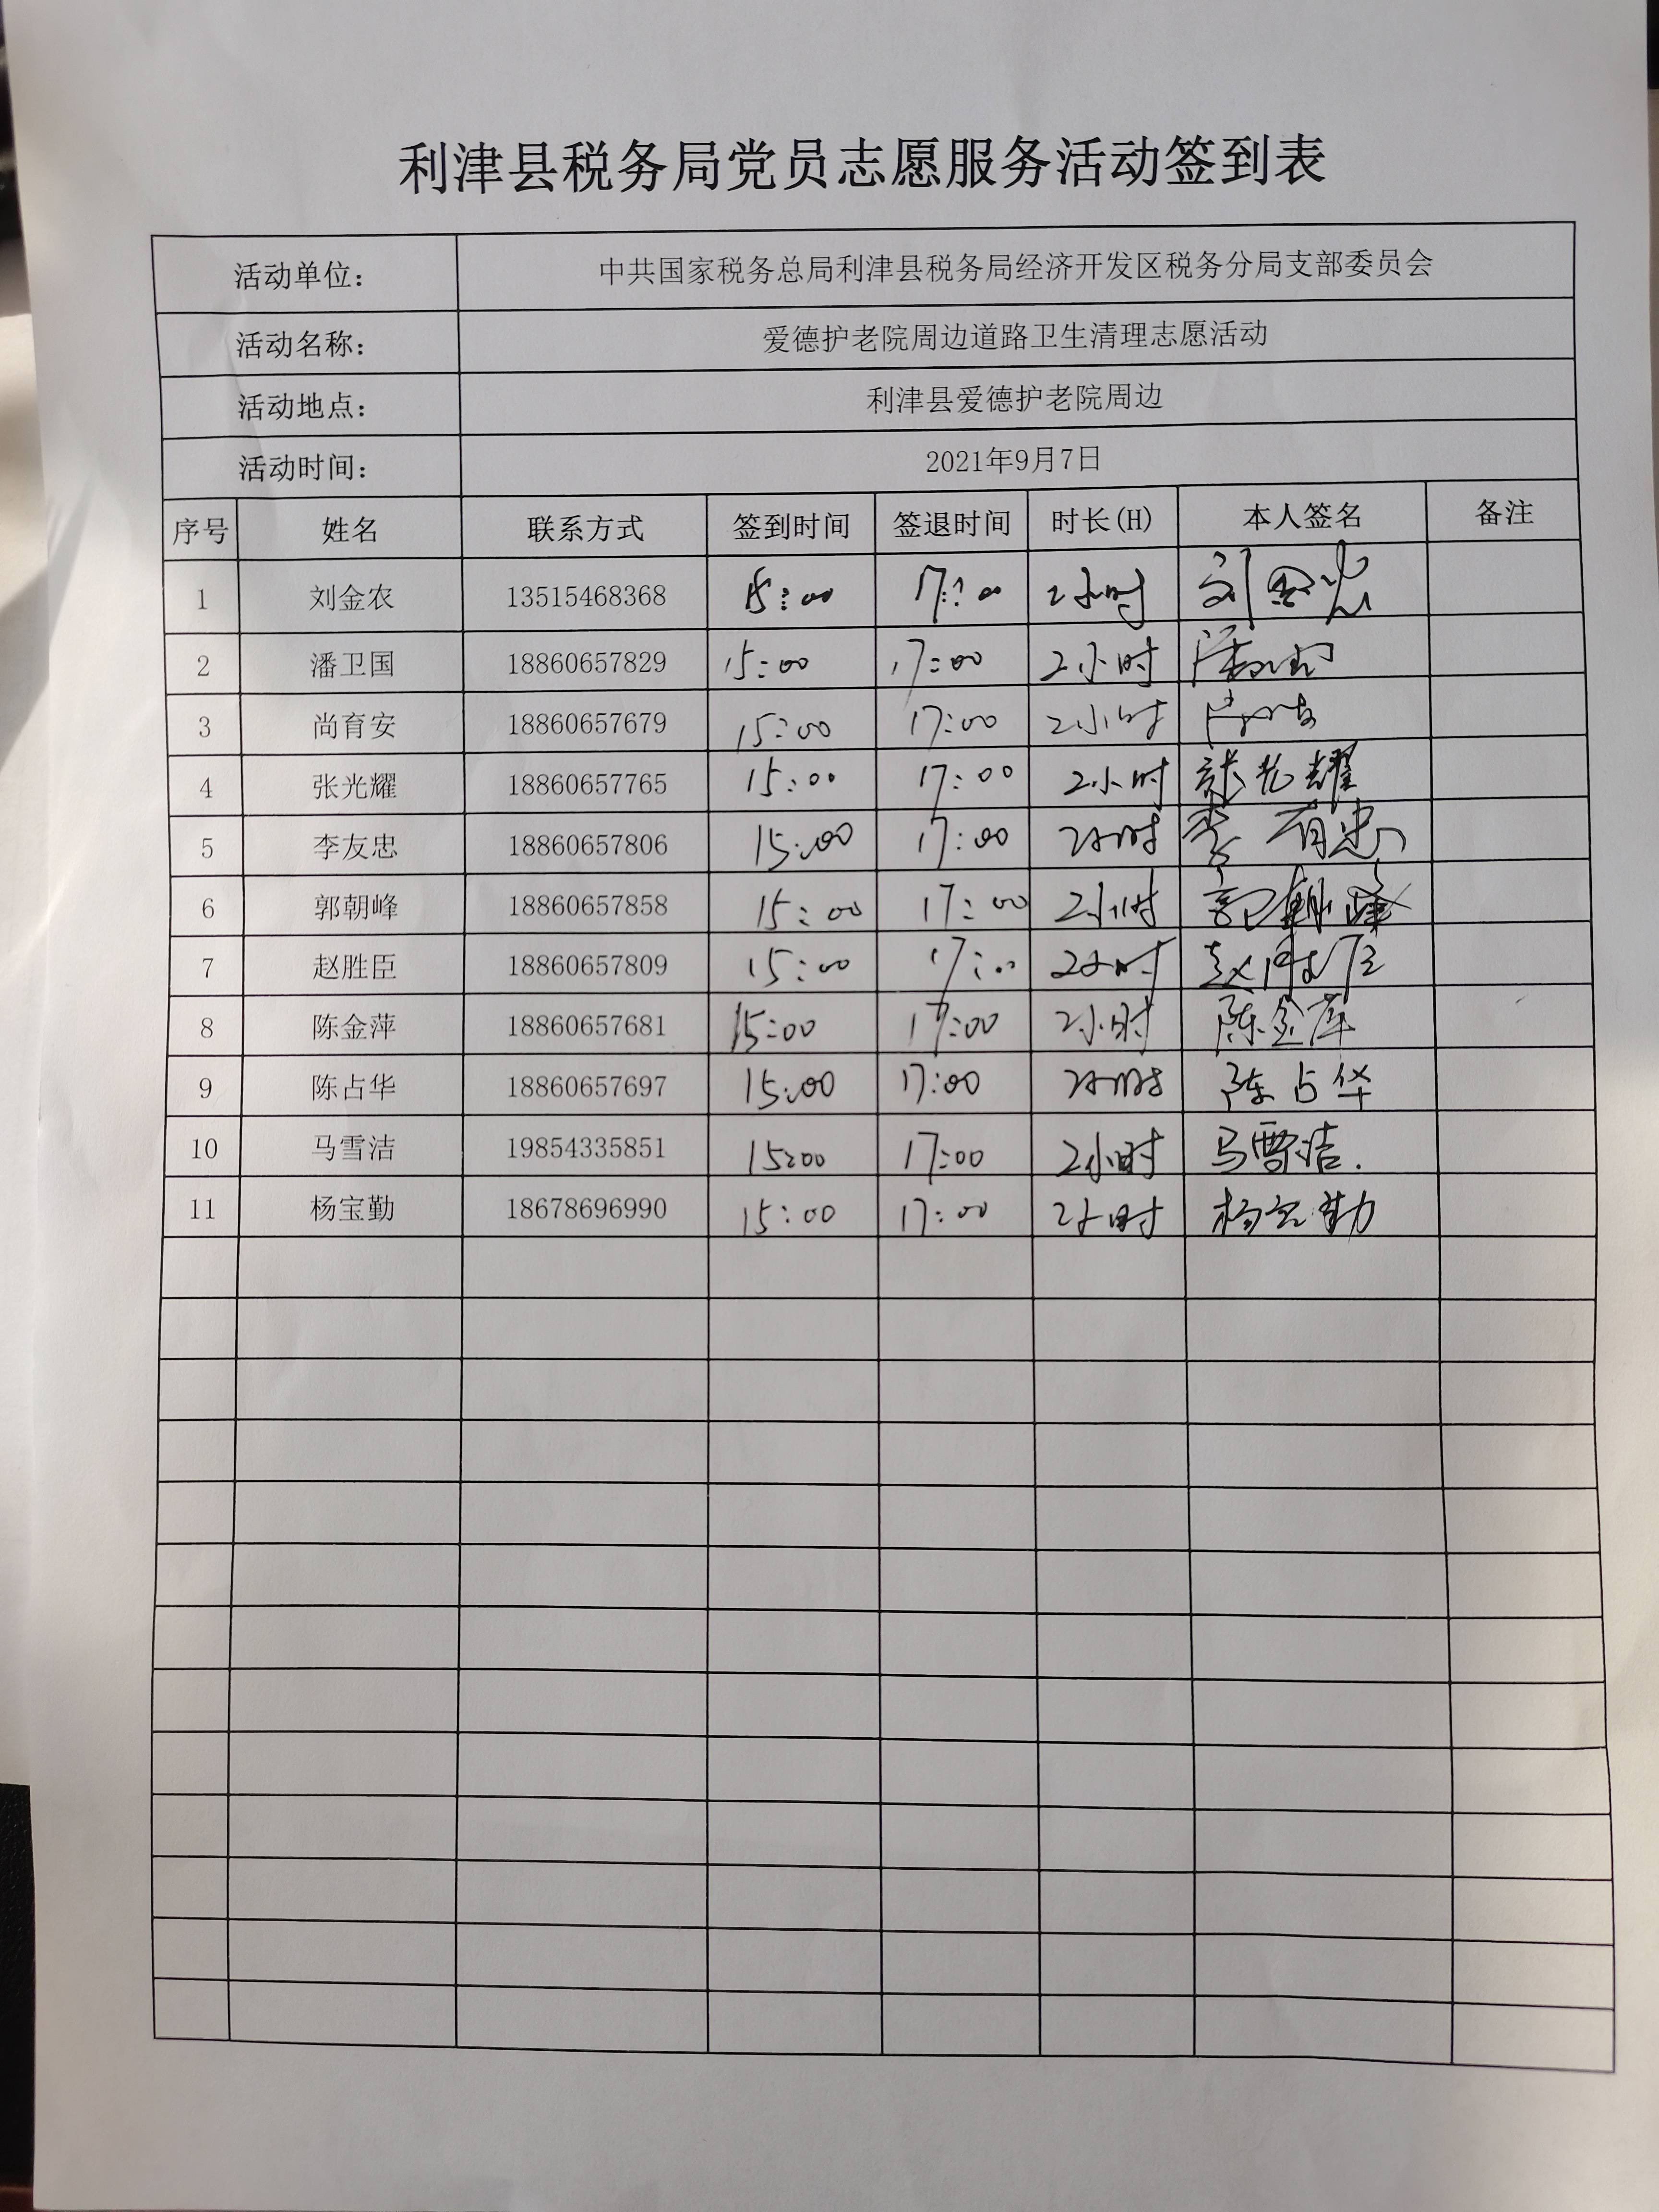 利津县税务局党员志愿服务活动签到表
活动单位： 中共国家税务总局利津县税务局经济开发区税务分局支部委员会
活动名称： 爱德护老院周边道路卫生清理志愿活动
活动地点： 利津县爱德护老院周边
活动时间： 2021年9月7日
序号 姓名 联系方式 签到时间 签退时间 时长(H) 本人签名 备注
1 刘金农 13515468368 15:00 17:00 2小时 刘金农
2 潘卫国 18860657829 15:00 17:00 2小时 潘卫国
3 尚育安 18860657679 15:00 17:00 2小时
4 张光耀 18860657765 15:00 17:00 2小时 张光耀
5 李友忠 18860657806 15:00 17:00 2小时 李有忠
6 郭朝峰 18860657858 15:00 17:00 2小时 郭朝峰
7 赵胜臣 18860657809 15:00 17:00 2小时 赵胜臣
8 陈金萍 18860657681 15:00 17:00 2小时 陈金萍
9 陈占华 18860657697 15:00 17:00 2小时 陈占华
10 马雪洁 19854335851 15:00 17:00 2小时 马雪洁.
11 杨宝勤 18678696990 15:00 17:00 2小时 杨宝勤